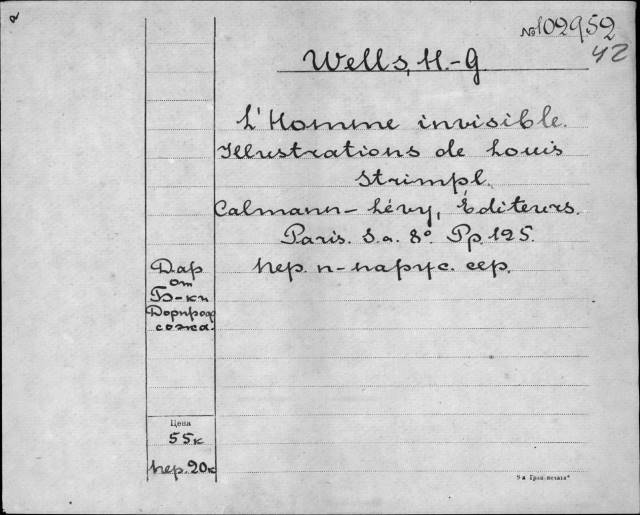 №102952
42
Wells, H.-G.
L'Homme invisible.
Illustrations de Louis
Strimpl.
Calmann-Lévy, Éditeurs.
Paris. S.a. 8° Pp. 125.
пер. п-парус. сер.
Дар
от
Б-ки
Дорпроф
сожа.
Цена
55к
пер. 20к